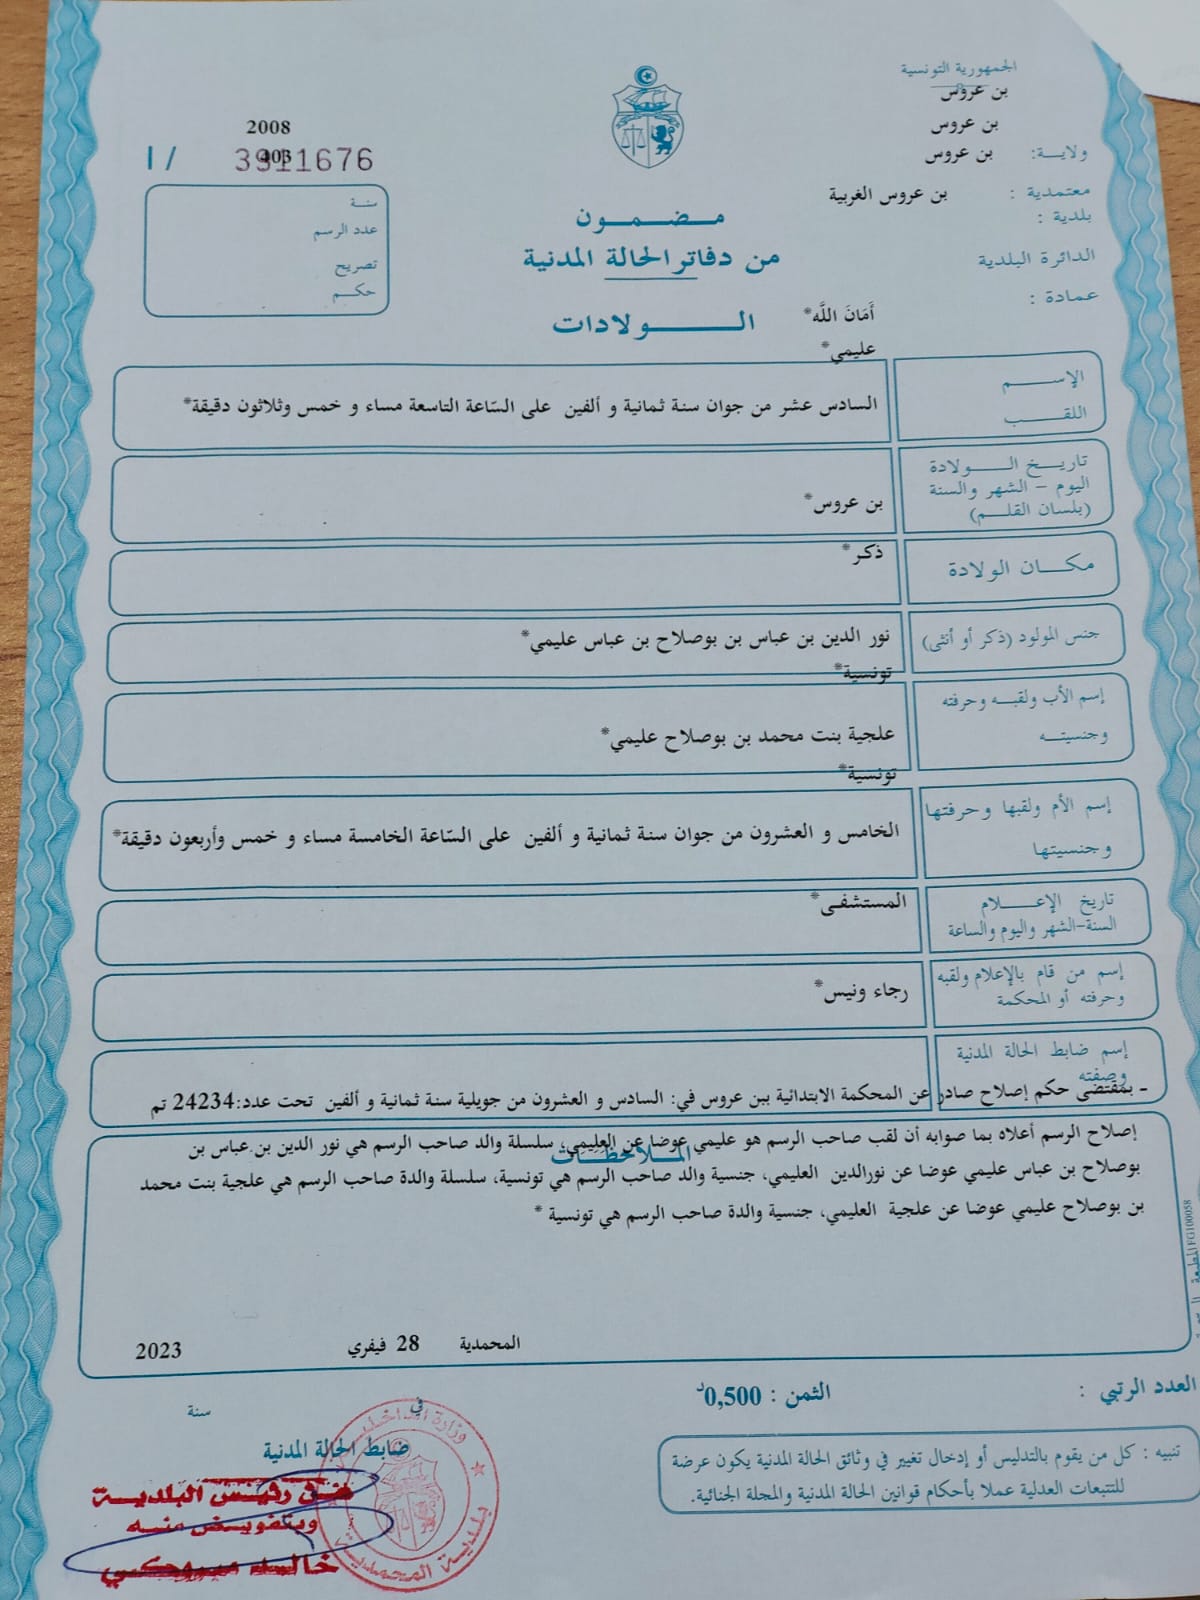 الجمهورية التونسية
بن عروس
بن عروس
ولاية: بن عروس
معتمدية : بن عروس الغربية
بلدية :
الدائرة البلدية
عمادة :
2008
403
I / 3911676
سنة
عدد الرسم
تصريح
حكم
مضمون
من دفاتر الحالة المدنية
الولادات
أَمَانَ اللَّه*
عليمي*
الإسم
اللقب
السادس عشر من جوان سنة ثمانية و ألفين على السّاعة التاسعة مساء و خمس وثلاثون دقيقة*
تاريخ الولادة
اليوم - الشهر والسنة
(بلسان القلم)
بن عروس*
مكان الولادة
ذكر*
جنس المولود (ذكر أو أنثى)
نور الدين بن عباس بن بوصلاح بن عباس عليمي*
تونسية*
إسم الأب ولقبه وحرفته
وجنسيته
علجية بنت محمد بن بوصلاح عليمي*
تونسية*
إسم الأم ولقبها وحرفتها
وجنسيتها
الخامس و العشرون من جوان سنة ثمانية و ألفين على السّاعة الخامسة مساء و خمس وأربعون دقيقة*
تاريخ الإعلام
السنة-الشهر واليوم والساعة
المستشفى*
إسم من قام بالإعلام ولقبه
وحرفته أو المحكمة
رجاء ونيس*
إسم ضابط الحالة المدنية
وصفته
- بمقتضى حكم إصلاح صادر عن المحكمة الابتدائية ببن عروس في: السادس و العشرون من جويلية سنة ثمانية و ألفين تحت عدد:24234 تم
الملاحظات
إصلاح الرسم أعلاه بما صوابه أن لقب صاحب الرسم هو عليمي عوضا عن العليمي، سلسلة والد صاحب الرسم هي نور الدين بن عباس بن
بوصلاح بن عباس عليمي عوضا عن نورالدين العليمي، جنسية والد صاحب الرسم هي تونسية، سلسلة والدة صاحب الرسم هي علجية بنت محمد
بن بوصلاح عليمي عوضا عن علجية العليمي، جنسية والدة صاحب الرسم هي تونسية *
المحمدية 28 فيفري 2023
العدد الرتبي :
الثمن : 0,500د
في سنة
ضابط الحالة المدنية
تنبيه : كل من يقوم بالتدليس أو إدخال تغيير في وثائق الحالة المدنية يكون عرضة
للتتبعات العدلية عملا بأحكام قوانين الحالة المدنية والمجلة الجنائية.
وزارة الداخلية
بلدية المحمدية
عن رئيس البلدية
وبتفويض منه
خالد
FG100058